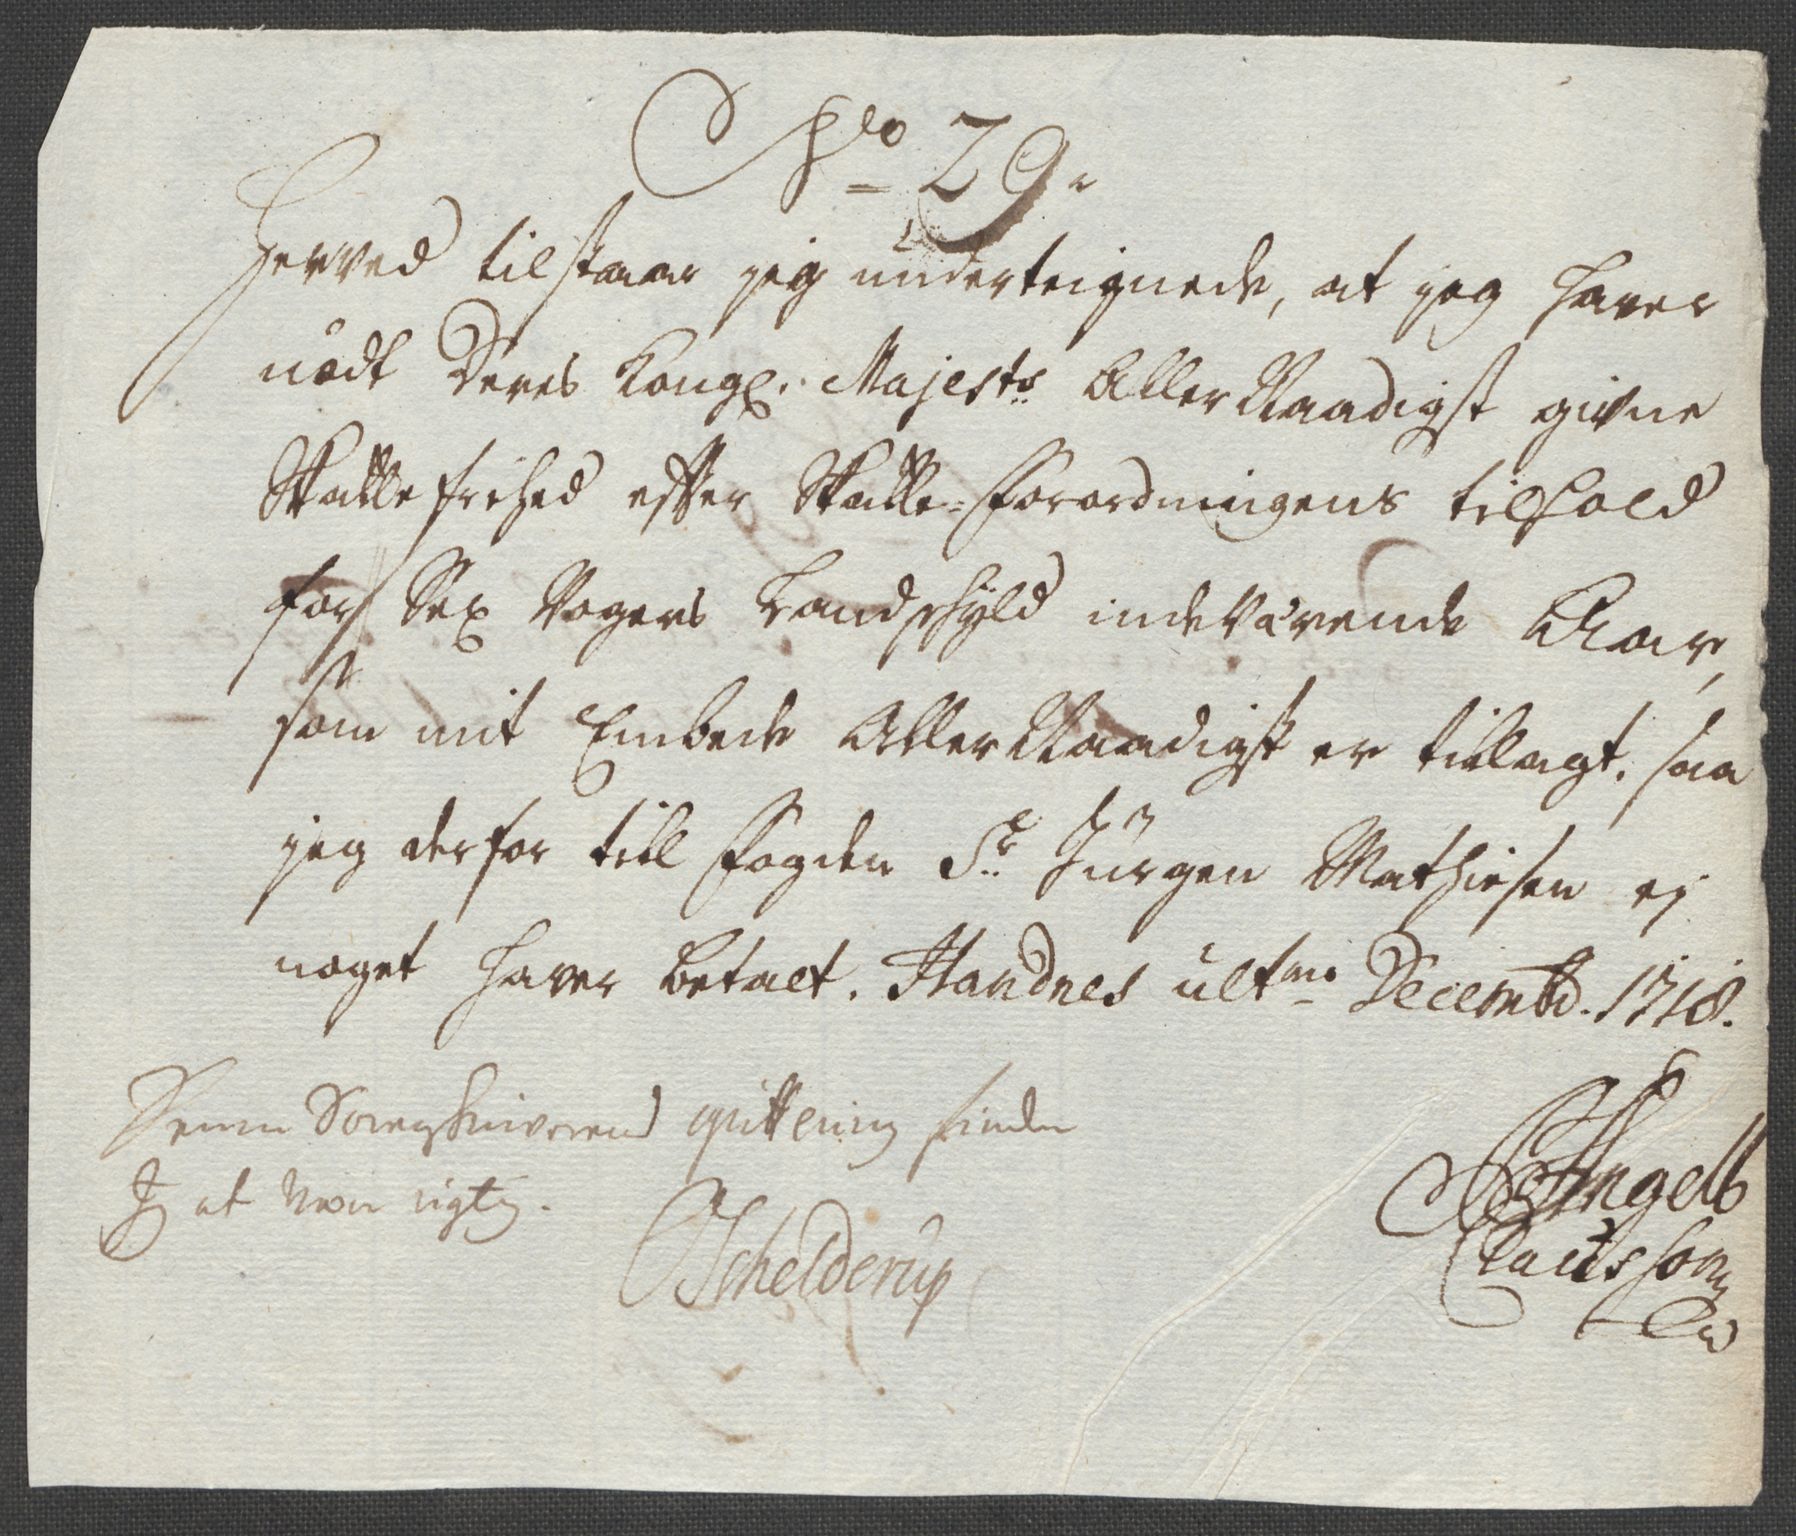 No 29.
Herved tilstaar jeg underteignede, at jeg haver
nødt Deres Kongl. Majestz Aller Naadigst givne
Skatte frihed efter Skatte-Forordningens tilhold
for Sex Vogers Landschyld indeværende Aar,
som mit Embede Aller Naadigst er tillagt, saa
jeg derfor till Fogden Sr. Jürgen Mathiesen ej
noget haver betalt. Handnes ultmo Decembr. 1718.
Angell
Claussøn
Denne Sorenskriverens quittering finder
Jeg at være rigtig.
Schelderup